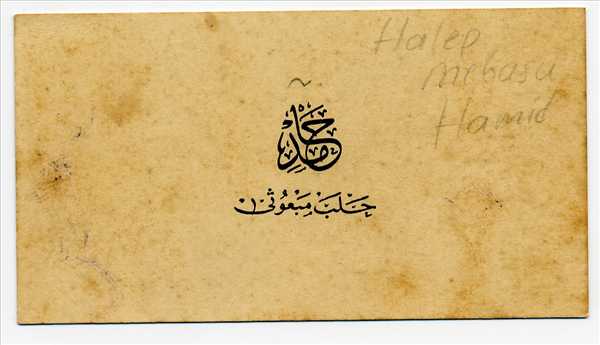 Halep
mebusu
Hamid
حامد
حلب مبعوثى